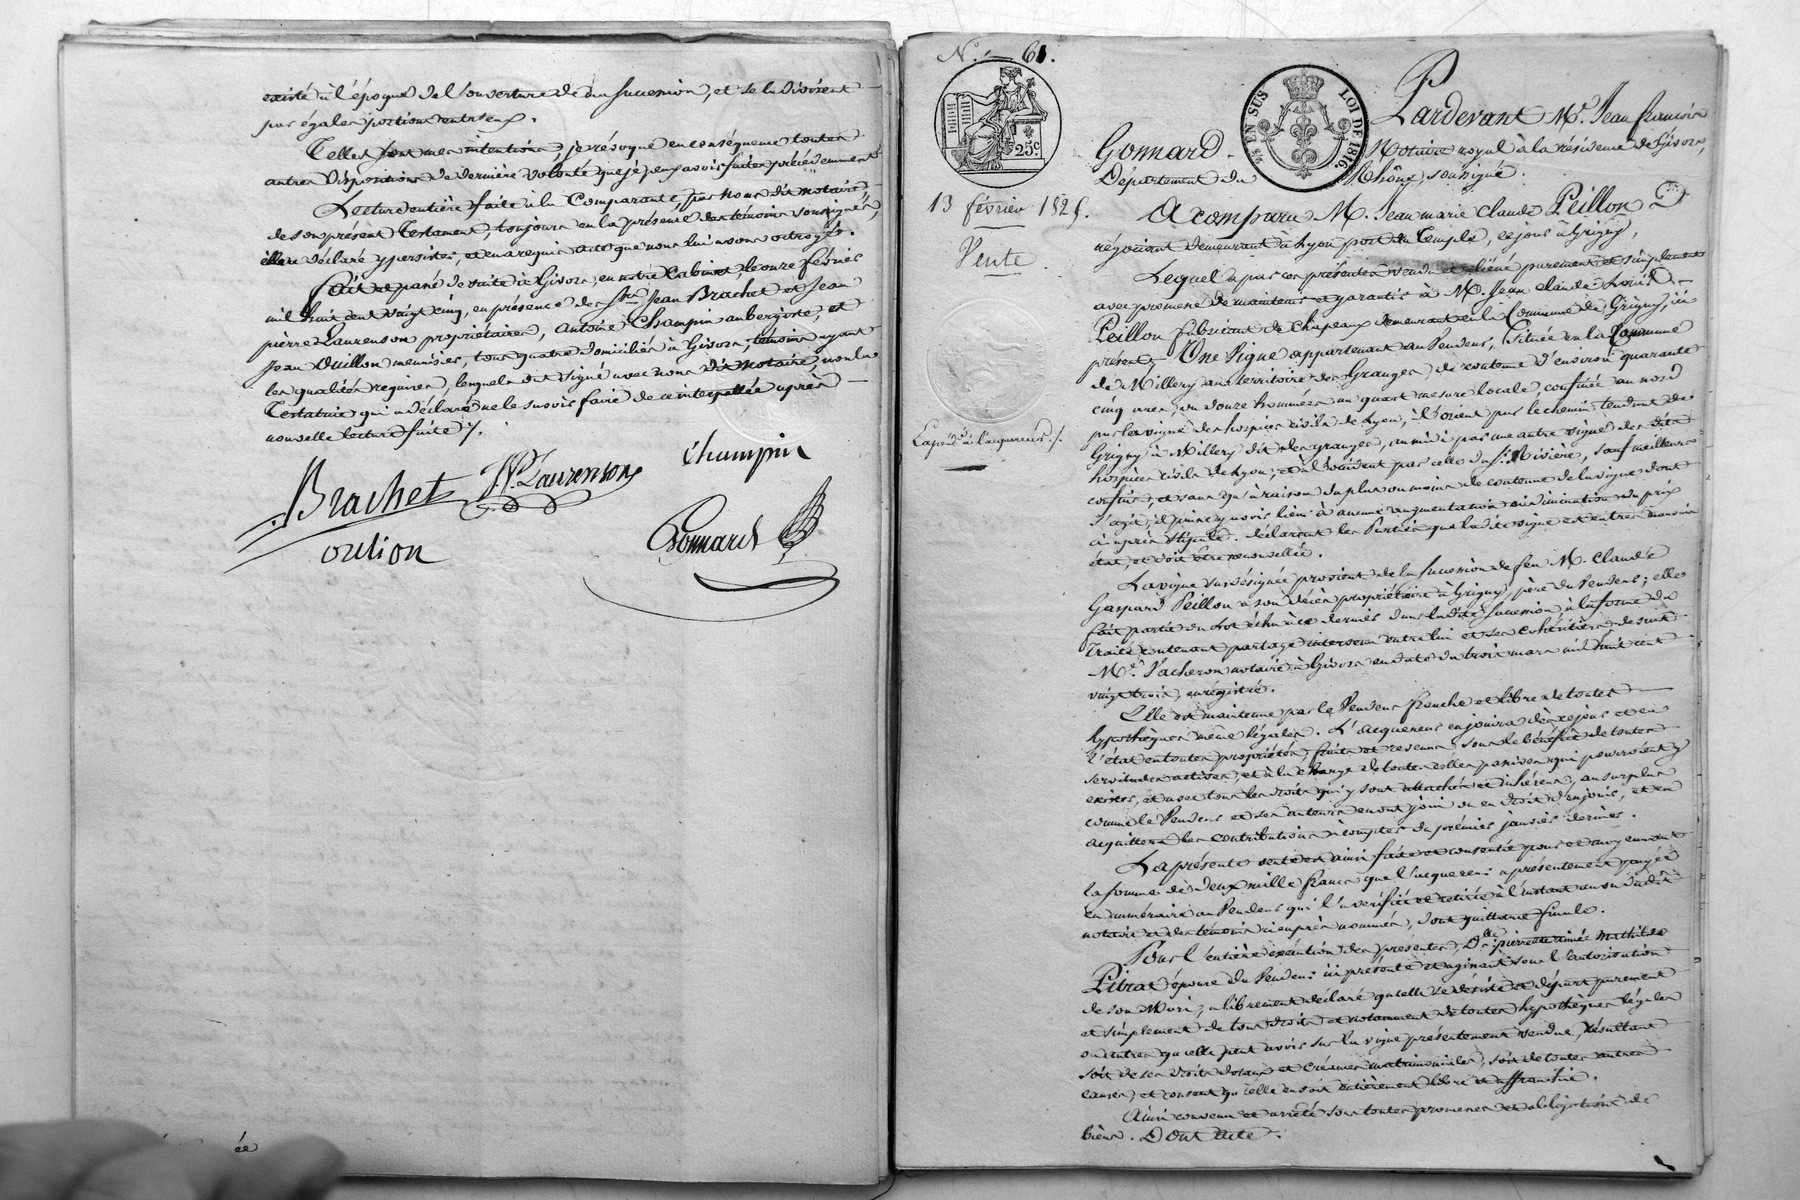 existé à l'époque de l'ouverture de ma succession, et se la divisent
par égales portions entr'eux.
Telles sont mes intentions, je révoque en conséquence toutes
autres dispositions de dernière volonté que je peux avoir faites précédemment
Lecture entière faite à la Comparante, par nous dit notaire,
de son présent Testament, toujours en la présence des témoins soussignés,
elle a déclaré y persister, et en a requis acte que nous lui avons octroyé.
Fait et passé de suite à Givors, en notre Cabinet, le onze février
mil huit cent vingt cinq, en présence de Srs Jean Brachet et Jean
pierre Laurenson propriétaires, Antoine Champin aubergiste, et
Jean Ouillon menuisier, tous quatre domiciliés à Givors, témoins ayant
les qualités requises, lesquels ont signé avec nous dit notaire, non la
Testatrice qui a déclaré ne le savoir faire de ce interpellée après
nouvelle lecture faite ./.
Champin
Brachet J.P. Laurenson
oulion
Gonnard
ée
N.° 61.
25c
5c EN SUS
LOI DE 1816.
13 février 1825.
Vente.
Expéd. à l'acquéreur ./.
Pardevant Me. Jean françois
Gonnard, Notaire royal à la résidence de Givors,
Département du Rhône, soussigné.
A comparu M. Jean marie Claude Peillon
négociant demeurant à Lyon port du Temple, ce jour à Grigny,
Lequel a par ces présentes vendu et aliéné purement et simplement
avec promesse de maintenir et garantir à M. Jean Claude Louis
Peillon fabricant de chapeaux demeurant en la Commune de Grigny, ici
présent, Une Vigne appartenant au Vendeur, Située en la Commune
de Millery au territoire des Granges, de contenue d'environ quarante
cinq ares, ou douze hommées un quart mesure locale confinée au nord
par la vigne des hospices civils de Lyon, à l'orient par le chemin tendant de
Grigny à Millery dit des granges, au midi par une autre vigne des dits
hospices civils de Lyon, et à l'occident par celle du Sr. Rivière, sauf meilleurs
confins, et sans qu'à raison du plus ou moins de contenue de la vigne dont
s'agit, il puisse y avoir lieu à aucune augmentation ni diminution du prix
ci-après stipulé. déclarant les Parties que ladite vigne est en très mauvais
état, et doit être renouvellée.
La vigne susdésignée provient de la succession de feu M. Claude
Gaspard Peillon à son décès propriétaire à Grigny, père du Vendeur; elle
fait partie du lot échu à ce dernier dans ladite succession, à la forme du
Traité contenant partage intervenu entre lui et ses cohéritiers devant
Me. Vacheron notaire à Givors en date du trois mars mil huit cent
vingt trois, enrégistré.
Elle est maintenue par le Vendeur franche et libre de toutes
hypothèques même légales. L'acquereur en jouira dès ce jour et en
l'état en toutes propriétés, fruits et revenus, sous le bénéfice de toutes
servitudes actives, et à la charge de toutes celles passives qui pourroient y
exister, et avec tous les droits qui y sont attachés et inhérens, au surplus
comme le Vendeur et ses auteurs en ont joui ou eu droit d'en jouir, et en
acquittera les contributions à compter du premier janvier dernier.
La présente vente est ainsi faite et consentie pour et moyennant
la somme de deux mille francs que l'acquereur a présentement payée
en numéraire au Vendeur qui l'a vérifiée et retirée à l'instant au vu dudit
notaire et des témoins ci-après nommés, dont quittance finale.
Pour l'entière exécution des présentes, Dlle. pierrette aimée Mathilde
Pitrat épouse du Vendeur ici présente et agissant sous l'autorisation
de son Mari, a librement déclaré qu'elle se désiste et départ purement
et simplement de tous droits et notamment de toutes hypothèques légales
ou autres qu'elle peut avoir sur la vigne présentement vendue, résultant
soit de ses droits dotaux et créances matrimoniales, soit de toutes autres
causes, et consent qu'elle en soit entièrement libre et affranchie.
Ainsi convenu et arrêté sous toutes promesses et obligations de
biens. Dont acte.